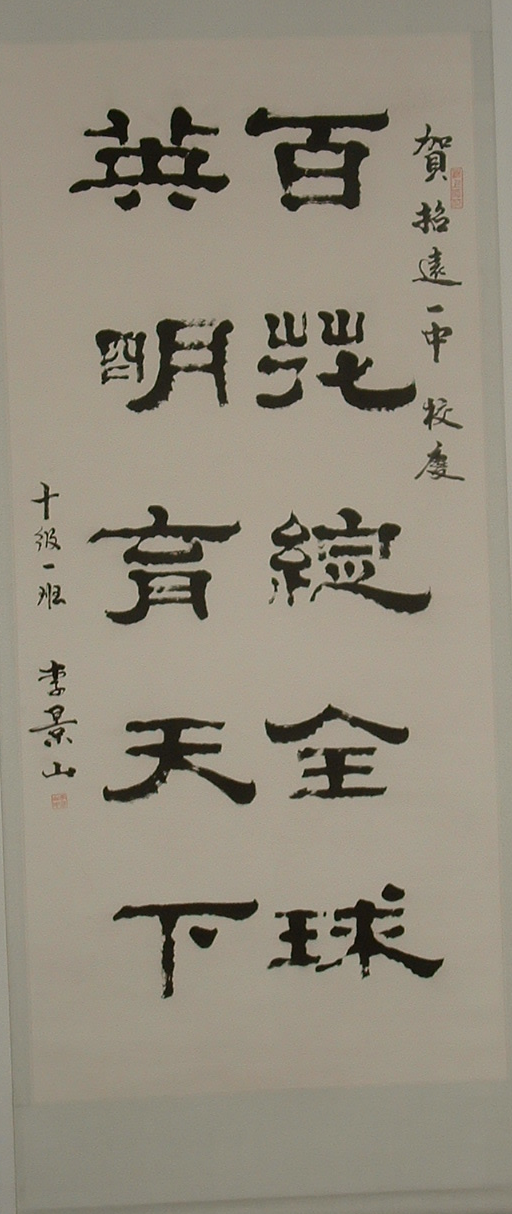 賀 招遠一中 校慶
百花綻全球
英明育天下
十級一班 李景山